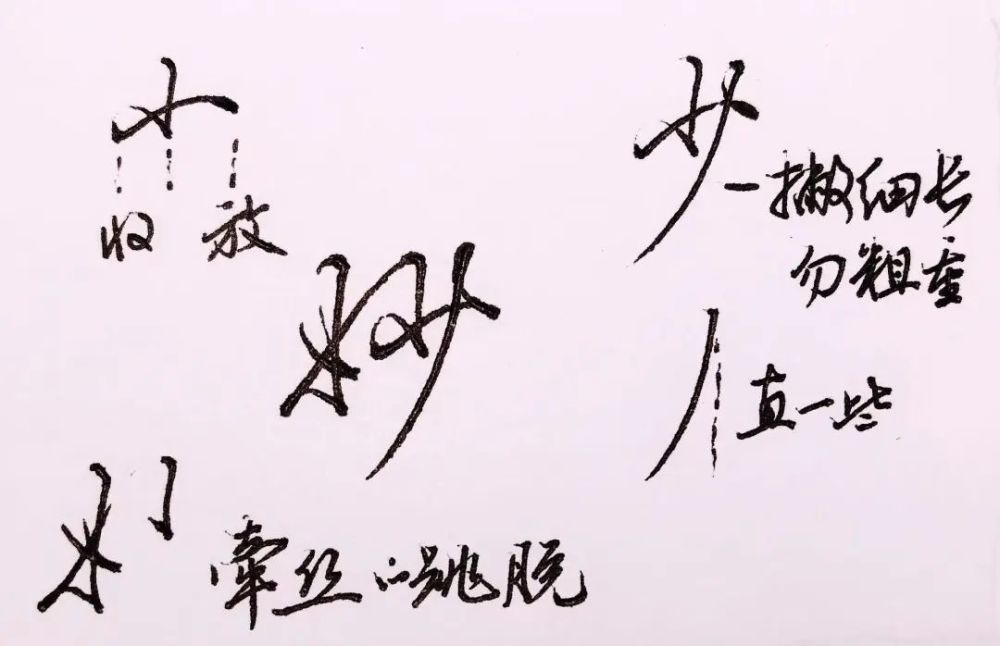 小
收 放
少
一撇细长
勿粗重
妙
直一些
牵丝 跳脱